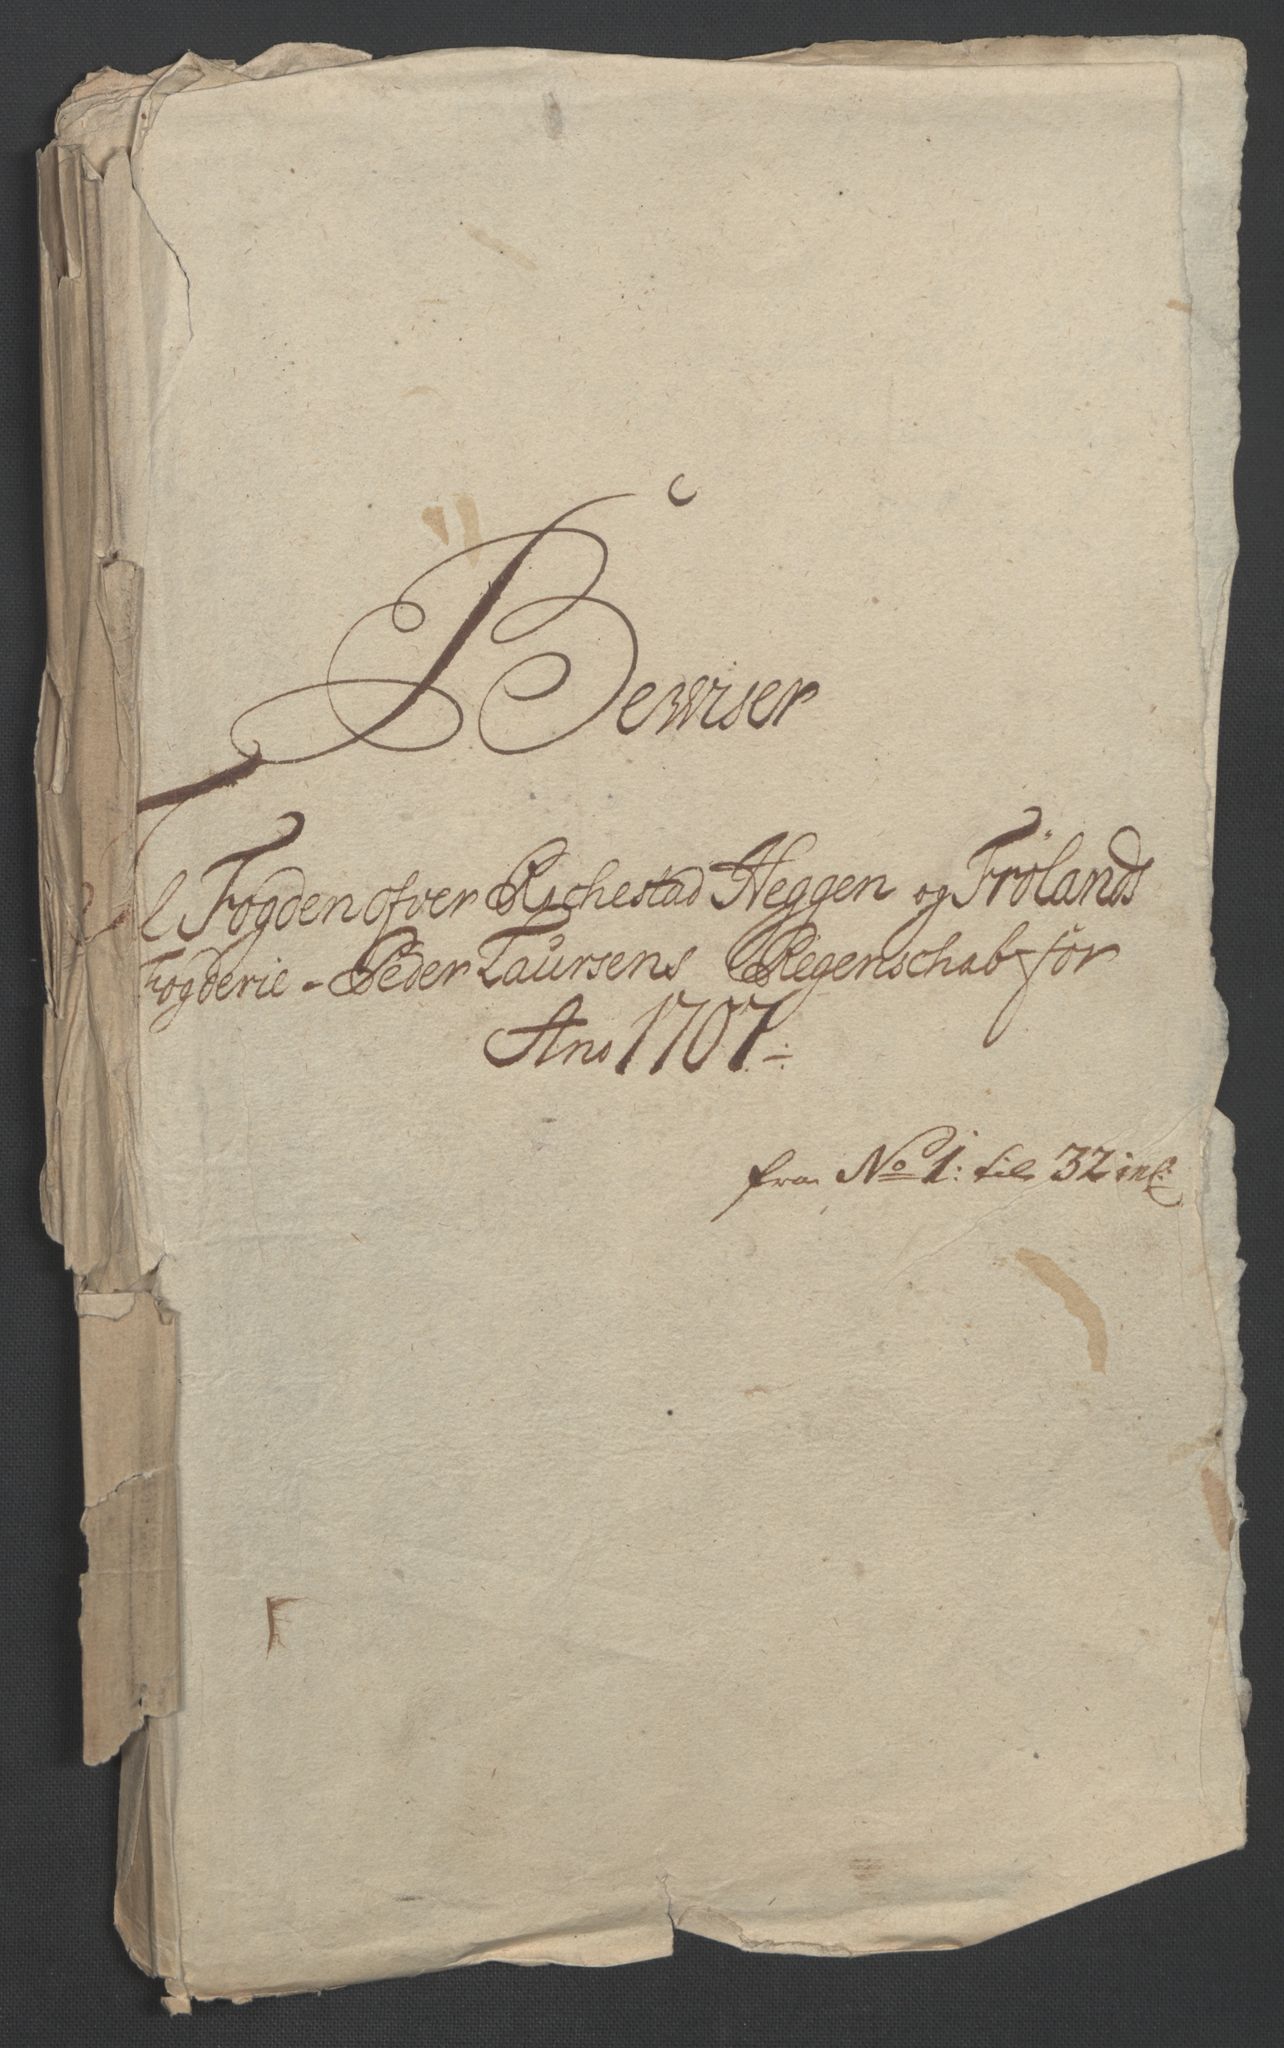 Bewiser
Til Fogden ofver Rachestad Heggen og Frølands
Fogderie - Peder Laursens Regenschab før
Ano 1707.
fra No 1: til 32 incl: